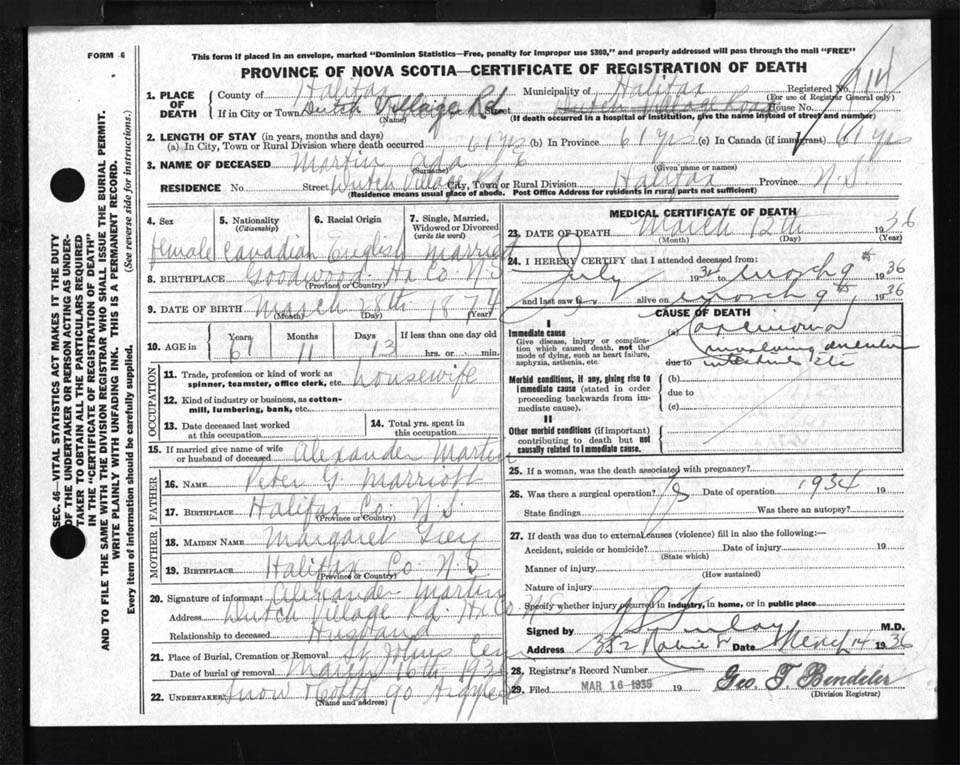 FORM 6
This form if placed in an envelope, marked "Dominion Statistics—Free, penalty for improper use $300," and properly addressed will pass through the mail "FREE"
PROVINCE OF NOVA SCOTIA—CERTIFICATE OF REGISTRATION OF DEATH
1. PLACE OF DEATH County of Halifax Municipality of Halifax Registered No. 914
(For use of Registrar General only)
If in City or Town Dutch Village Rd Street Dutch Village Road House No.
(Name) (If death occurred in a hospital or institution, give the name instead of street and number)
2. LENGTH OF STAY (in years, months and days)
(a) In City, Town or Rural Division where death occurred 61 yrs (b) In Province 61 yrs (c) In Canada (if immigrant) 61 yrs
3. NAME OF DECEASED Martin Ada
(Surname) (Given name or names)
RESIDENCE No. Street Dutch Village Rd City, Town or Rural Division Halifax Province N.S
(Residence means usual place of abode. Post Office Address for residents in rural parts not sufficient)
4. Sex 5. Nationality (Citizenship) 6. Racial Origin 7. Single, Married, Widowed or Divorced (write the word)
female Canadian English Married
8. BIRTHPLACE Goodwood Hx Co N.S
(Province or Country)
9. DATE OF BIRTH March 28th 1874
(Month) (Day) (Year)
10. AGE in Years Months Days If less than one day old
61 11 13 hrs. or min.
OCCUPATION
11. Trade, profession or kind of work as spinner, teamster, office clerk, etc. housewife
12. Kind of industry or business, as cotton-mill, lumbering, bank, etc.
13. Date deceased last worked at this occupation 14. Total yrs. spent in this occupation
15. If married give name of wife or husband of deceased Alexander Martin
FATHER
16. NAME Peter G. Marriott
17. BIRTHPLACE Halifax Co. N.S.
(Province or Country)
MOTHER
18. MAIDEN NAME Margaret Grey
19. BIRTHPLACE Halifax Co N.S
(Province or Country)
20. Signature of informant Alexander Martin
Address Dutch Village Rd. Hx Co N.S
Relationship to deceased Husband
21. Place of Burial, Cremation or Removal St Johns Cem
Date of burial or removal March 16th 1936
22. UNDERTAKER Snow & Co Ltd 90 Argyle St
(Name and address)
MEDICAL CERTIFICATE OF DEATH
23. DATE OF DEATH March 12th 1936
(Month) (Day) (Year)
24. I HEREBY CERTIFY that I attended deceased from:
July 1934 to March 9th 1936
and last saw h alive on March 9th 1936
CAUSE OF DEATH
I
Immediate cause
Give disease, injury or complication which caused death, not the mode of dying, such as heart failure, asphyxia, asthenia, etc.
(a) Carcinoma
involving
due to intestine etc
Morbid conditions, if any, giving rise to immediate cause (stated in order proceeding backwards from immediate cause).
(b)
due to
(c)
II
Other morbid conditions (if important) contributing to death but not causally related to immediate cause.
25. If a woman, was the death associated with pregnancy?
26. Was there a surgical operation? Date of operation 1934 19
State findings Was there an autopsy?
27. If death was due to external causes (violence) fill in also the following:—
Accident, suicide or homicide? Date of injury 19
(State which)
Manner of injury
(How sustained)
Nature of injury
Specify whether injury occurred in industry, in home, or in public place
Signed by M.D.
Address 352 Robie St Date March 14 1936
28. Registrar's Record Number
29. Filed MAR 16 1936 19 Geo. T. Bendeler
(Division Registrar)
SEC. 46—VITAL STATISTICS ACT MAKES IT THE DUTY
OF THE UNDERTAKER OR PERSON ACTING AS UNDER-
TAKER TO OBTAIN ALL THE PARTICULARS REQUIRED
IN THE "CERTIFICATE OF REGISTRATION OF DEATH"
AND TO FILE THE SAME WITH THE DIVISION REGISTRAR WHO SHALL ISSUE THE BURIAL PERMIT.
WRITE PLAINLY WITH UNFADING INK. THIS IS A PERMANENT RECORD.
Every item of information should be carefully supplied. (See reverse side for instructions.)